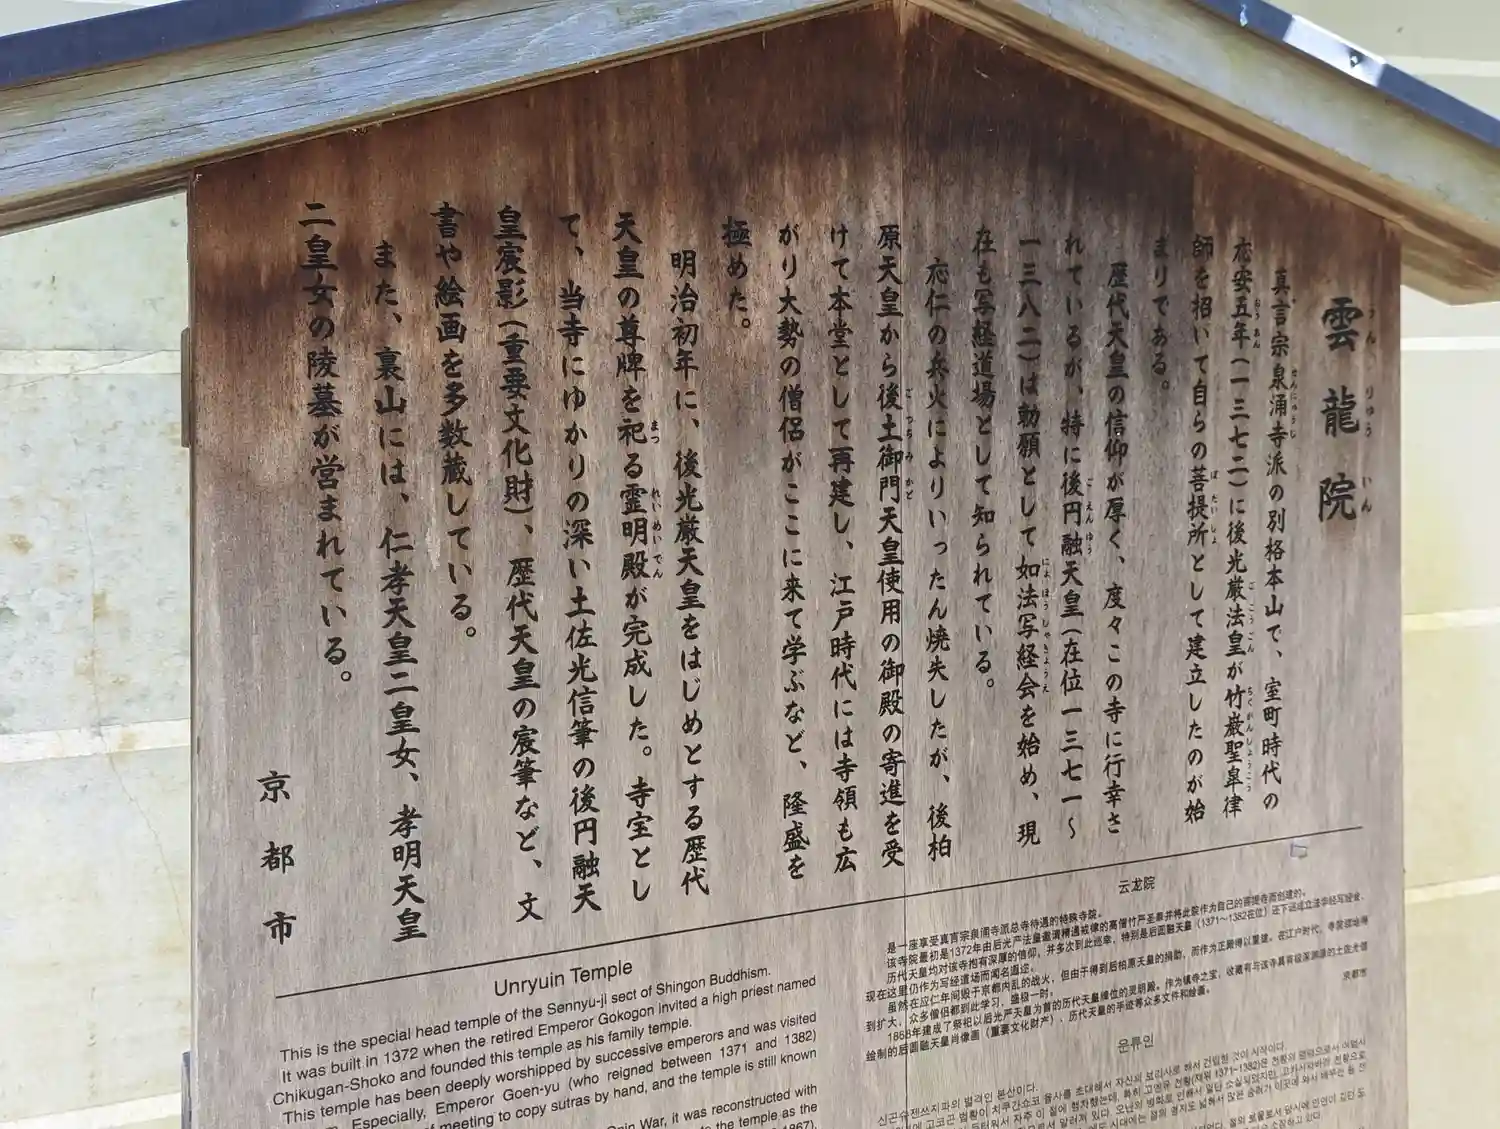 雲龍院
真言宗泉涌寺派の別格本山で、室町時代の
応安五年(一三七二)に後光厳法皇が竹巌聖皐律
師を招いて自らの菩提所として建立したのが始
まりである。
歴代天皇の信仰が厚く、度々この寺に行幸さ
れているが、特に後円融天皇(在位一三七一〜
一三八二)は勅願として如法写経会を始め、現
在も写経道場として知られている。
応仁の兵火によりいったん焼失したが、後柏
原天皇から後土御門天皇使用の御殿の寄進を受
けて本堂として再建し、江戸時代には寺領も広
がり大勢の僧侶がここに来て学ぶなど、隆盛を
極めた。
明治初年に、後光厳天皇をはじめとする歴代
天皇の尊牌を祀る霊明殿が完成した。寺宝とし
て、当寺にゆかりの深い土佐光信筆の後円融天
皇宸影(重要文化財)、歴代天皇の宸筆など、文
書や絵画を多数蔵している。
また、裏山には、仁孝天皇二皇女、孝明天皇
二皇女の陵墓が営まれている。
京都市
Unryuin Temple
This is the special head temple of the Sennyu-ji sect of Shingon Buddhism.
It was built in 1372 when the retired Emperor Gokogon invited a high priest named
Chikugan-Shoko and founded this temple as his family temple.
This temple has been deeply worshipped by successive emperors and was visited
Especially, Emperor Goen-yu (who reigned between 1371 and 1382)
of meeting to copy sutras by hand, and the temple is still known
War, it was reconstructed with
the temple as the
云龙院
是一座享受真言宗泉涌寺派总寺待遇的特殊寺院。
该寺院最初是1372年由后光严法皇邀请精通戒律的高僧竹严圣皋并将此院作为自己的菩提寺而创建的。
历代天皇均对该寺抱有深厚的信仰，并多次到此巡幸，特别是后圆融天皇（1371～1382在位）还下诏成立法华经写经会，
现在这里仍作为写经道场而闻名遐迩。
虽然在应仁年间毁于京都内乱的战火，但由于得到后柏原天皇的捐助，而作为正殿得以重建。在江户时代，寺院领地得
到扩大，众多僧侣都到此学习，盛极一时。
1868年建成了祭祀以后光严天皇为首的历代天皇牌位的灵明殿。作为镇寺之宝，收藏有与该寺具有极深渊源的土佐光信
绘制的后圆融天皇肖像画（重要文化财产）、历代天皇的手迹等众多文件和绘画。
京都市
운류인